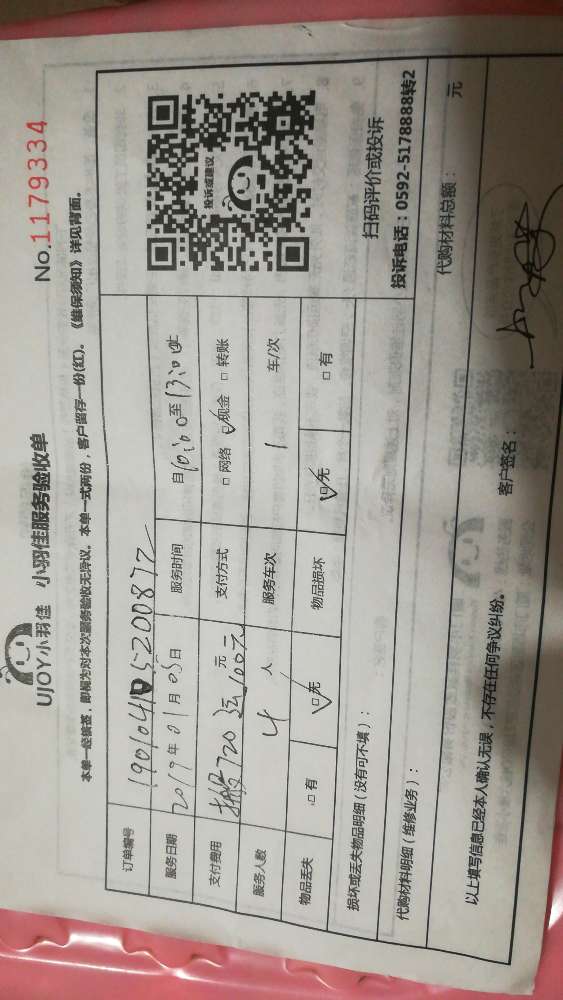 UJOY小羽佳 小羽佳服务验收单
No.1179334
本单一经核签，即视为对本次服务验收无异议，本单一式两份，客户留存一份(红)。《维保须知》详见背面。
订单编号
服务日期 2019年01月05日 服务时间 自10:00至13:00止
支付费用 搬720 元 支付方式 □网络 ☑现金 □转账
服务人数 4 人 服务车次 1 车/次
物品丢失 □有 ☑无 物品损坏 ☑无 □有
损坏或丢失物品明细（没有可不填）：
代购材料明细（维修业务）：
投诉或建议
扫码评价或投诉
投诉电话：0592-5178888转2
代购材料总额： 元
以上填写信息已经本人确认无误，不存在任何争议纠纷。
客户签名：